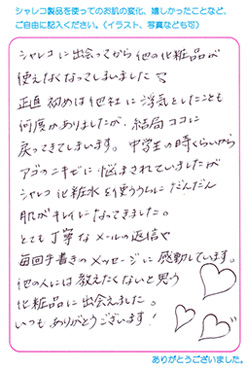 シャレコ製品を使ってのお肌の変化、嬉しかったことなど、
ご自由に記入ください。(イラスト、写真なども可)
シャレコに出会ってから他の化粧品が
使えなくなってしまいました
正直初めは他社に浮気したことも
何度かありましたが、結局ココに
戻ってきてしまいます。中学生の時くらいから
アゴのニキビに悩まされていましたが
シャレコ化粧水を使ううちにだんだん
肌がキレイになってきました。
とても丁寧なメールの返信や
毎回手書きのメッセージに感動しています。
他の人には教えたくないと思う
化粧品に出会えました。
いつもありがとうございます!
ありがとうございました。